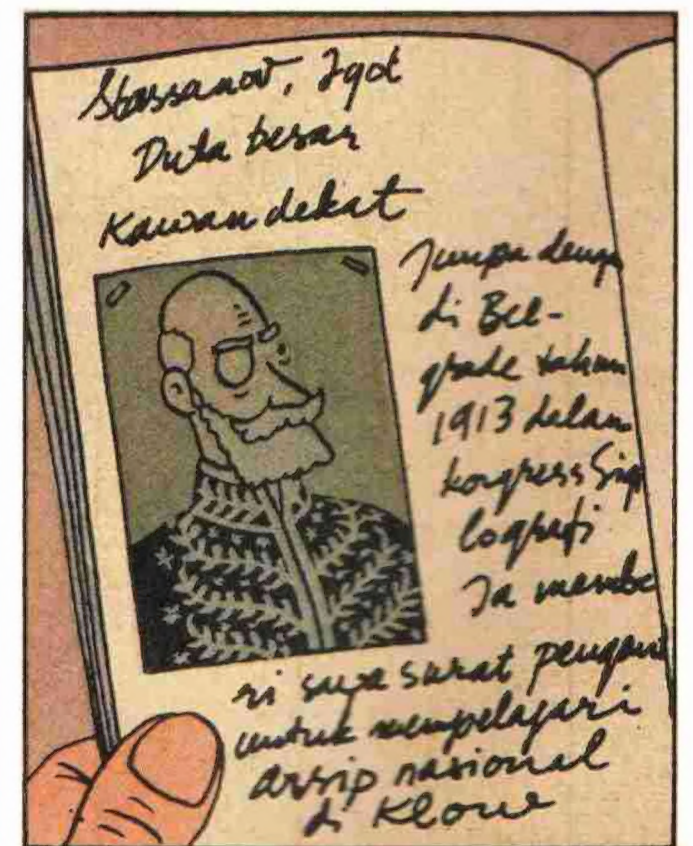 Stassanov, Igot
Duta besar
Kawan dekat
Jumpa denga
di Bel-
grade tahun
1913 dalam
kongress Sigi
lografi
Ia membe
ri saya surat pengant
untuk mempelajari
arsip nasional
di Klow